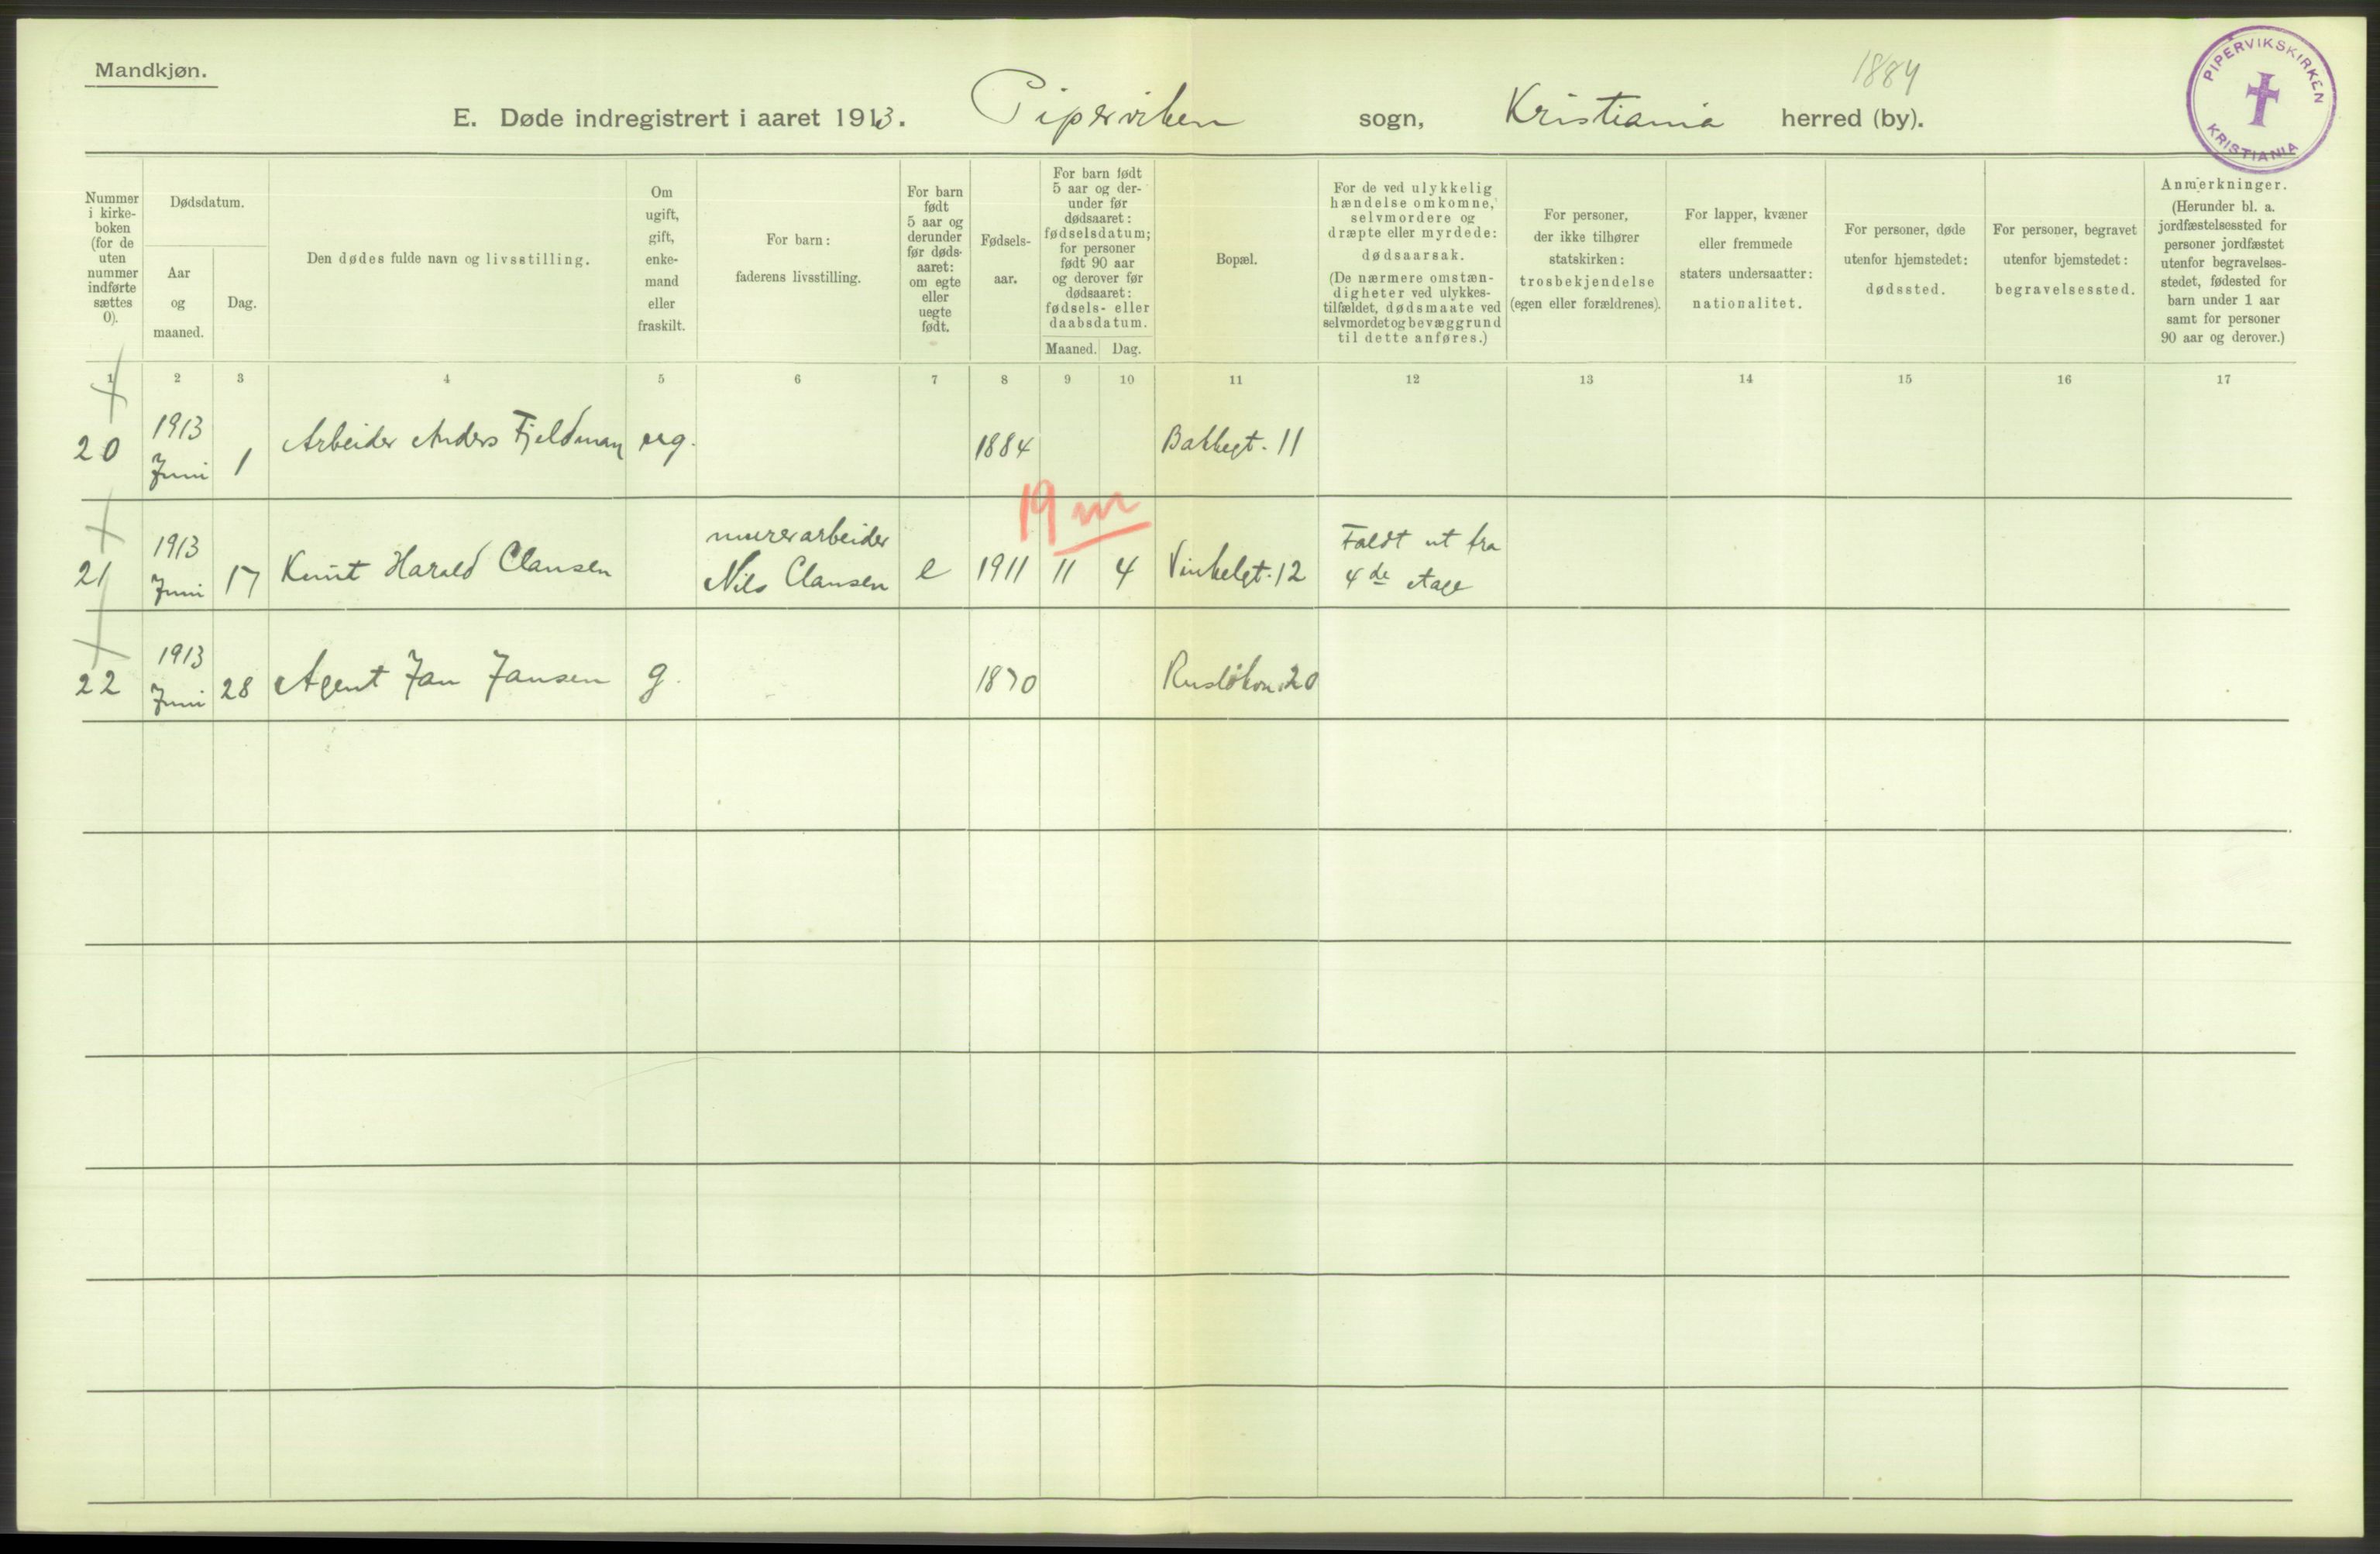 Mandkjøn.
1884
E. Døde indregistrert i aaret 1913. Piperviken sogn, Kristiania herred (by).
PIPERVIKSKIRKEN
KRISTIANIA
Nummer
i kirke-
boken
(for de
uten
nummer
indførte
sættes
0).
Dødsdatum.
Aar
og
maaned.
Dag.
Den dødes fulde navn og livsstilling.
Om
ugift,
gift,
enke-
mand
eller
fraskilt.
For barn:
faderens livsstilling.
For barn
født
5 aar og
derunder
før døds-
aaret:
om egte
eller
uegte
født.
Fødsels-
aar.
For barn født
5 aar og der-
under før
dødsaaret:
fødselsdatum;
for personer
født 90 aar
og derover før
dødsaaret:
fødsels- eller
daabsdatum.
Maaned. Dag.
Bopæl.
For de ved ulykkelig
hændelse omkomne,
selvmordere og
dræpte eller myrdede:
dødsaarsak.
(De nærmere omstæn-
digheter ved ulykkes-
tilfældet, dødsmaate ved
selvmordet og bevæggrund
til dette anføres.)
For personer,
der ikke tilhører
statskirken:
trosbekjendelse
(egen eller forældrenes).
For lapper, kvæner
eller fremmede
staters undersaatter:
nationalitet.
For personer, døde
utenfor hjemstedet:
dødssted.
For personer, begravet
utenfor hjemstedet:
begravelsessted.
Anmerkninger.
(Herunder bl. a.
jordfæstelsessted for
personer jordfæstet
utenfor begravelses-
stedet, fødested for
barn under 1 aar
samt for personer
90 aar og derover.)
1 2 3 4 5 6 7 8 9 10 11 12 13 14 15 16 17
20 1913 Juni 1 Arbeider Anders Fjeldman ug. 1884 Bakkegt. 11
19 m
21 1913 Juni 17 Knut Harald Clausen murerarbeider Nils Clausen e 1911 11 4 Vinkelgt. 12 Faldt ut fra 4de etage
22 1913 Juni 28 Agent Jan Jansen g. 1870 Rusløkv. 20